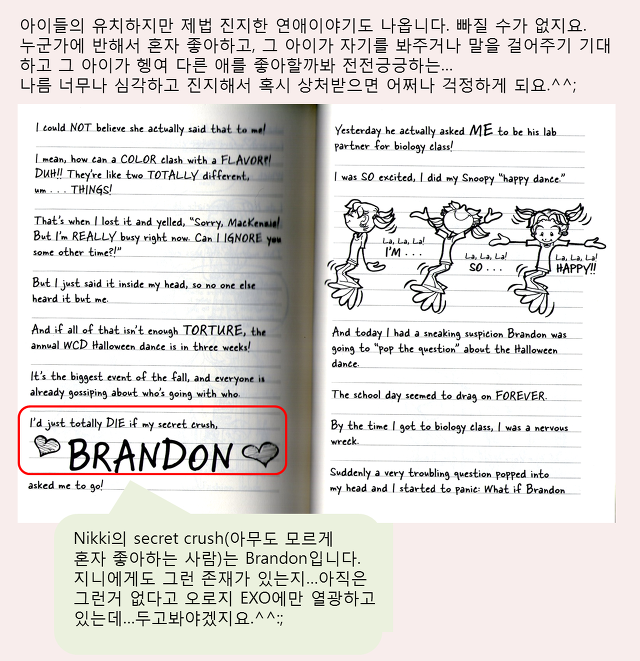 아이들의 유치하지만 제법 진지한 연애이야기도 나옵니다. 빠질 수가 없지요.
누군가에 반해서 혼자 좋아하고, 그 아이가 자기를 봐주거나 말을 걸어주기 기대
하고 그 아이가 헹여 다른 애를 좋아할까봐 전전긍긍하는...
나름 너무나 심각하고 진지해서 혹시 상처받으면 어쩌나 걱정하게 되요.^^;
I could NOT believe she actually said that to me!
I mean, how can a COLOR clash with a FLAVOR?!
DUH!! They're like two TOTALLY different,
um . . . THINGS!
That's when I lost it and yelled, "Sorry, MacKenzie!
But I'm REALLY busy right now. Can I IGNORE you
some other time?!"
But I just said it inside my head, so no one else
heard it but me.
And if all of that isn't enough TORTURE, the
annual WCD Halloween dance is in three weeks!
It's the biggest event of the fall, and everyone is
already gossiping about who's going with who.
I'd just totally DIE if my secret crush,
BRANDON
asked me to go!
Yesterday he actually asked ME to be his lab
partner for biology class!
I was SO excited, I did my Snoopy "happy dance."
La, La, La!
I'M . . .
La, La, La!
SO . . .
La, La, La!
HAPPY!!
And today I had a sneaking suspicion Brandon was
going to "pop the question" about the Halloween
dance.
The school day seemed to drag on FOREVER.
By the time I got to biology class, I was a nervous
wreck.
Suddenly a very troubling question popped into
my head and I started to panic: What if Brandon
Nikki의 secret crush(아무도 모르게
혼자 좋아하는 사람)는 Brandon입니다.
지니에게도 그런 존재가 있는지...아직은
그런거 없다고 오로지 EXO에만 열광하고
있는데...두고봐야겠지요.^^:;